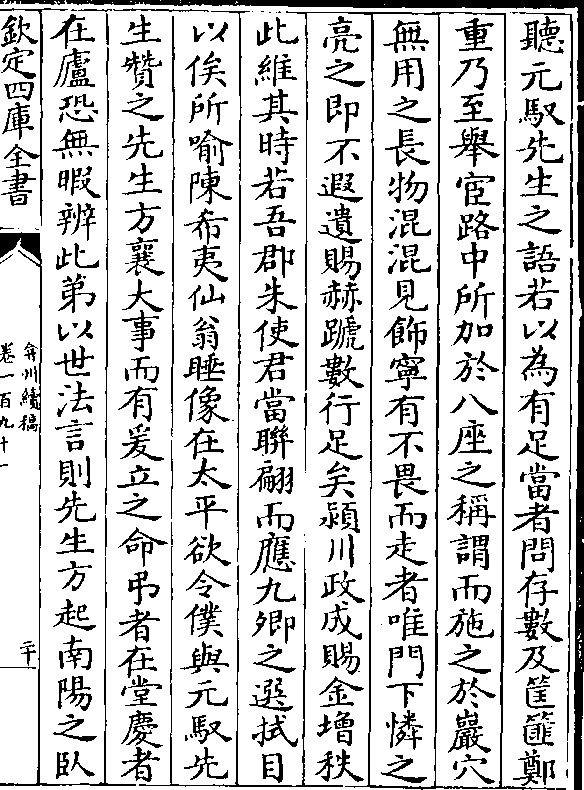 聽元馭先生之語若以為有足當者問存數及筐篚鄭
重乃至舉宦路中所加於八座之稱謂而施之於巖穴
無用之長物混混見飾寧有不畏而走者唯門下憐之
亮之即不遐遺賜赫蹏數行足矣潁川政成賜金增秩
此維其時若吾郡朱使君當聯翩而應九卿之選拭目
以俟所喻陳希夷仙翁睡像在太平欲令僕與元馭先
生贊之先生方襄大事而有爰立之命弔者在堂慶者
在廬恐無暇辨此第以世法言則先生方起南陽之臥
欽定四庫全書
弇州續稿
卷一百九十一
二十